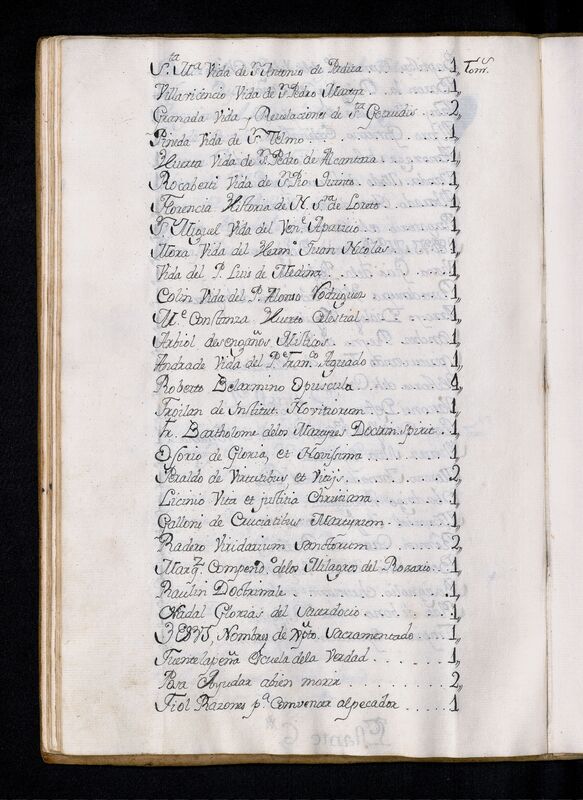 S.ta M.a Vida de S. Antonio de Padua . . 1,, Tom.s
Villavicencio Vida de S. Pedro Martir 1,,
Granada Vida y Revelaciones de S.ta Getrudis 2,,
Pineda Vida de S. Telmo . . . . . 1,,
Huerta Vida de S. Pedro de Alcantara 1,,
Rocaberti Vida de S. Pio Quinto . . 1,,
Florencia Historia de N. S.ra de Loreto . 1,,
S. Miguel Vida del Ven.e Aparicio . . 1,,
Mora Vida del Herm.o Juan Nicolas . 1,,
Vida del P. Luis de Medina . . . . 1,,
Colin Vida del P. Alonso Rodriguez 1,,
M.e Constanza Huerto Celestial . . . 1,,
Arbiol desengaños Misticos . . . . 1,,
Andrade Vida del P.e Fran.co Aguado 1,,
Roberto Belarmino Opuscula 4,,
Froilan de Institut. Novitiorum . . . 1,,
Fr. Bartholome delos Martyres Doctrin. Spirit . 1,,
Osorio de Gloria, et Novissima . . . . 1,,
Peraldo de Virtutibus et Vitijs . . . . 2,,
Licinio Vita et justitia Christiana . . . 1,,
Galloni de Cruciatibus Martyrum . . . 1,,
Radero Viridarium Sanctorum . . . 2,,
Marq.z Compend.o delos Milagros del Rosario . 1,,
Raulin Doctrinale . . . . . 1,,
Nadal Glorias del Sacerdocio . . . . 1,,
JESVS, Nombres de Xpto. Sacramentado . 1,,
Fuentelapeña Escuela dela Verdad . . . . . . 1,,
Para Ayudar abien morir . . . . . 2,,
Fiol Razones p.a Convencer alpecador . . . . . 1